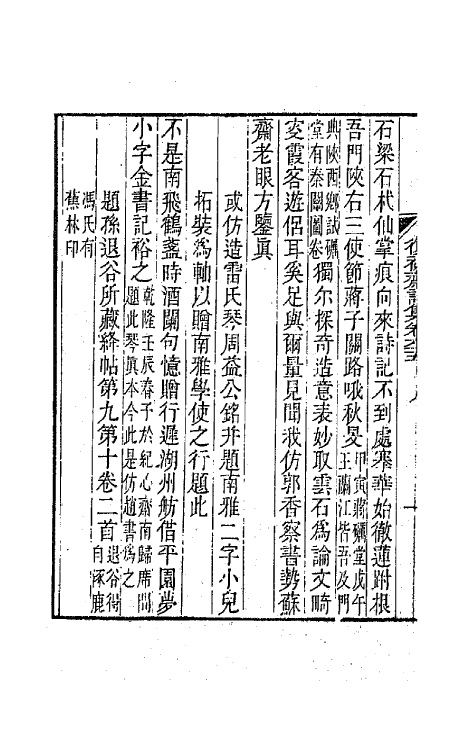 石梁石栿仙掌痕向來詩記不到處搴華始徹蓮跗根
吾門陝右三使節蔣子關路哦秋旻甲寅蔣礪堂戊午王蘭江皆吾及門
典陝西鄉試礪堂有秦關圖卷獨尔探奇造意表妙取雲石為論文畸
霞客遊侶耳奚足與爾量見聞我仿郭香察書勢蘇
齋老眼方鑒眞
或仿造雷氏琴周益公銘并題南雅二字小兒
拓裝為軸以贈南雅學使之行題此
不是南飛鶴盞時酒闌句憶贈行遲湖州舫借平園夢
小字金書記裕之乾隆壬辰春予於紀心齋南歸席間題此琴眞本今此是仿趙書為之
題孫退谷所藏絳帖第九第十卷二首退谷得自涿鹿
馮氏有蕉林印
復初齋詩集卷